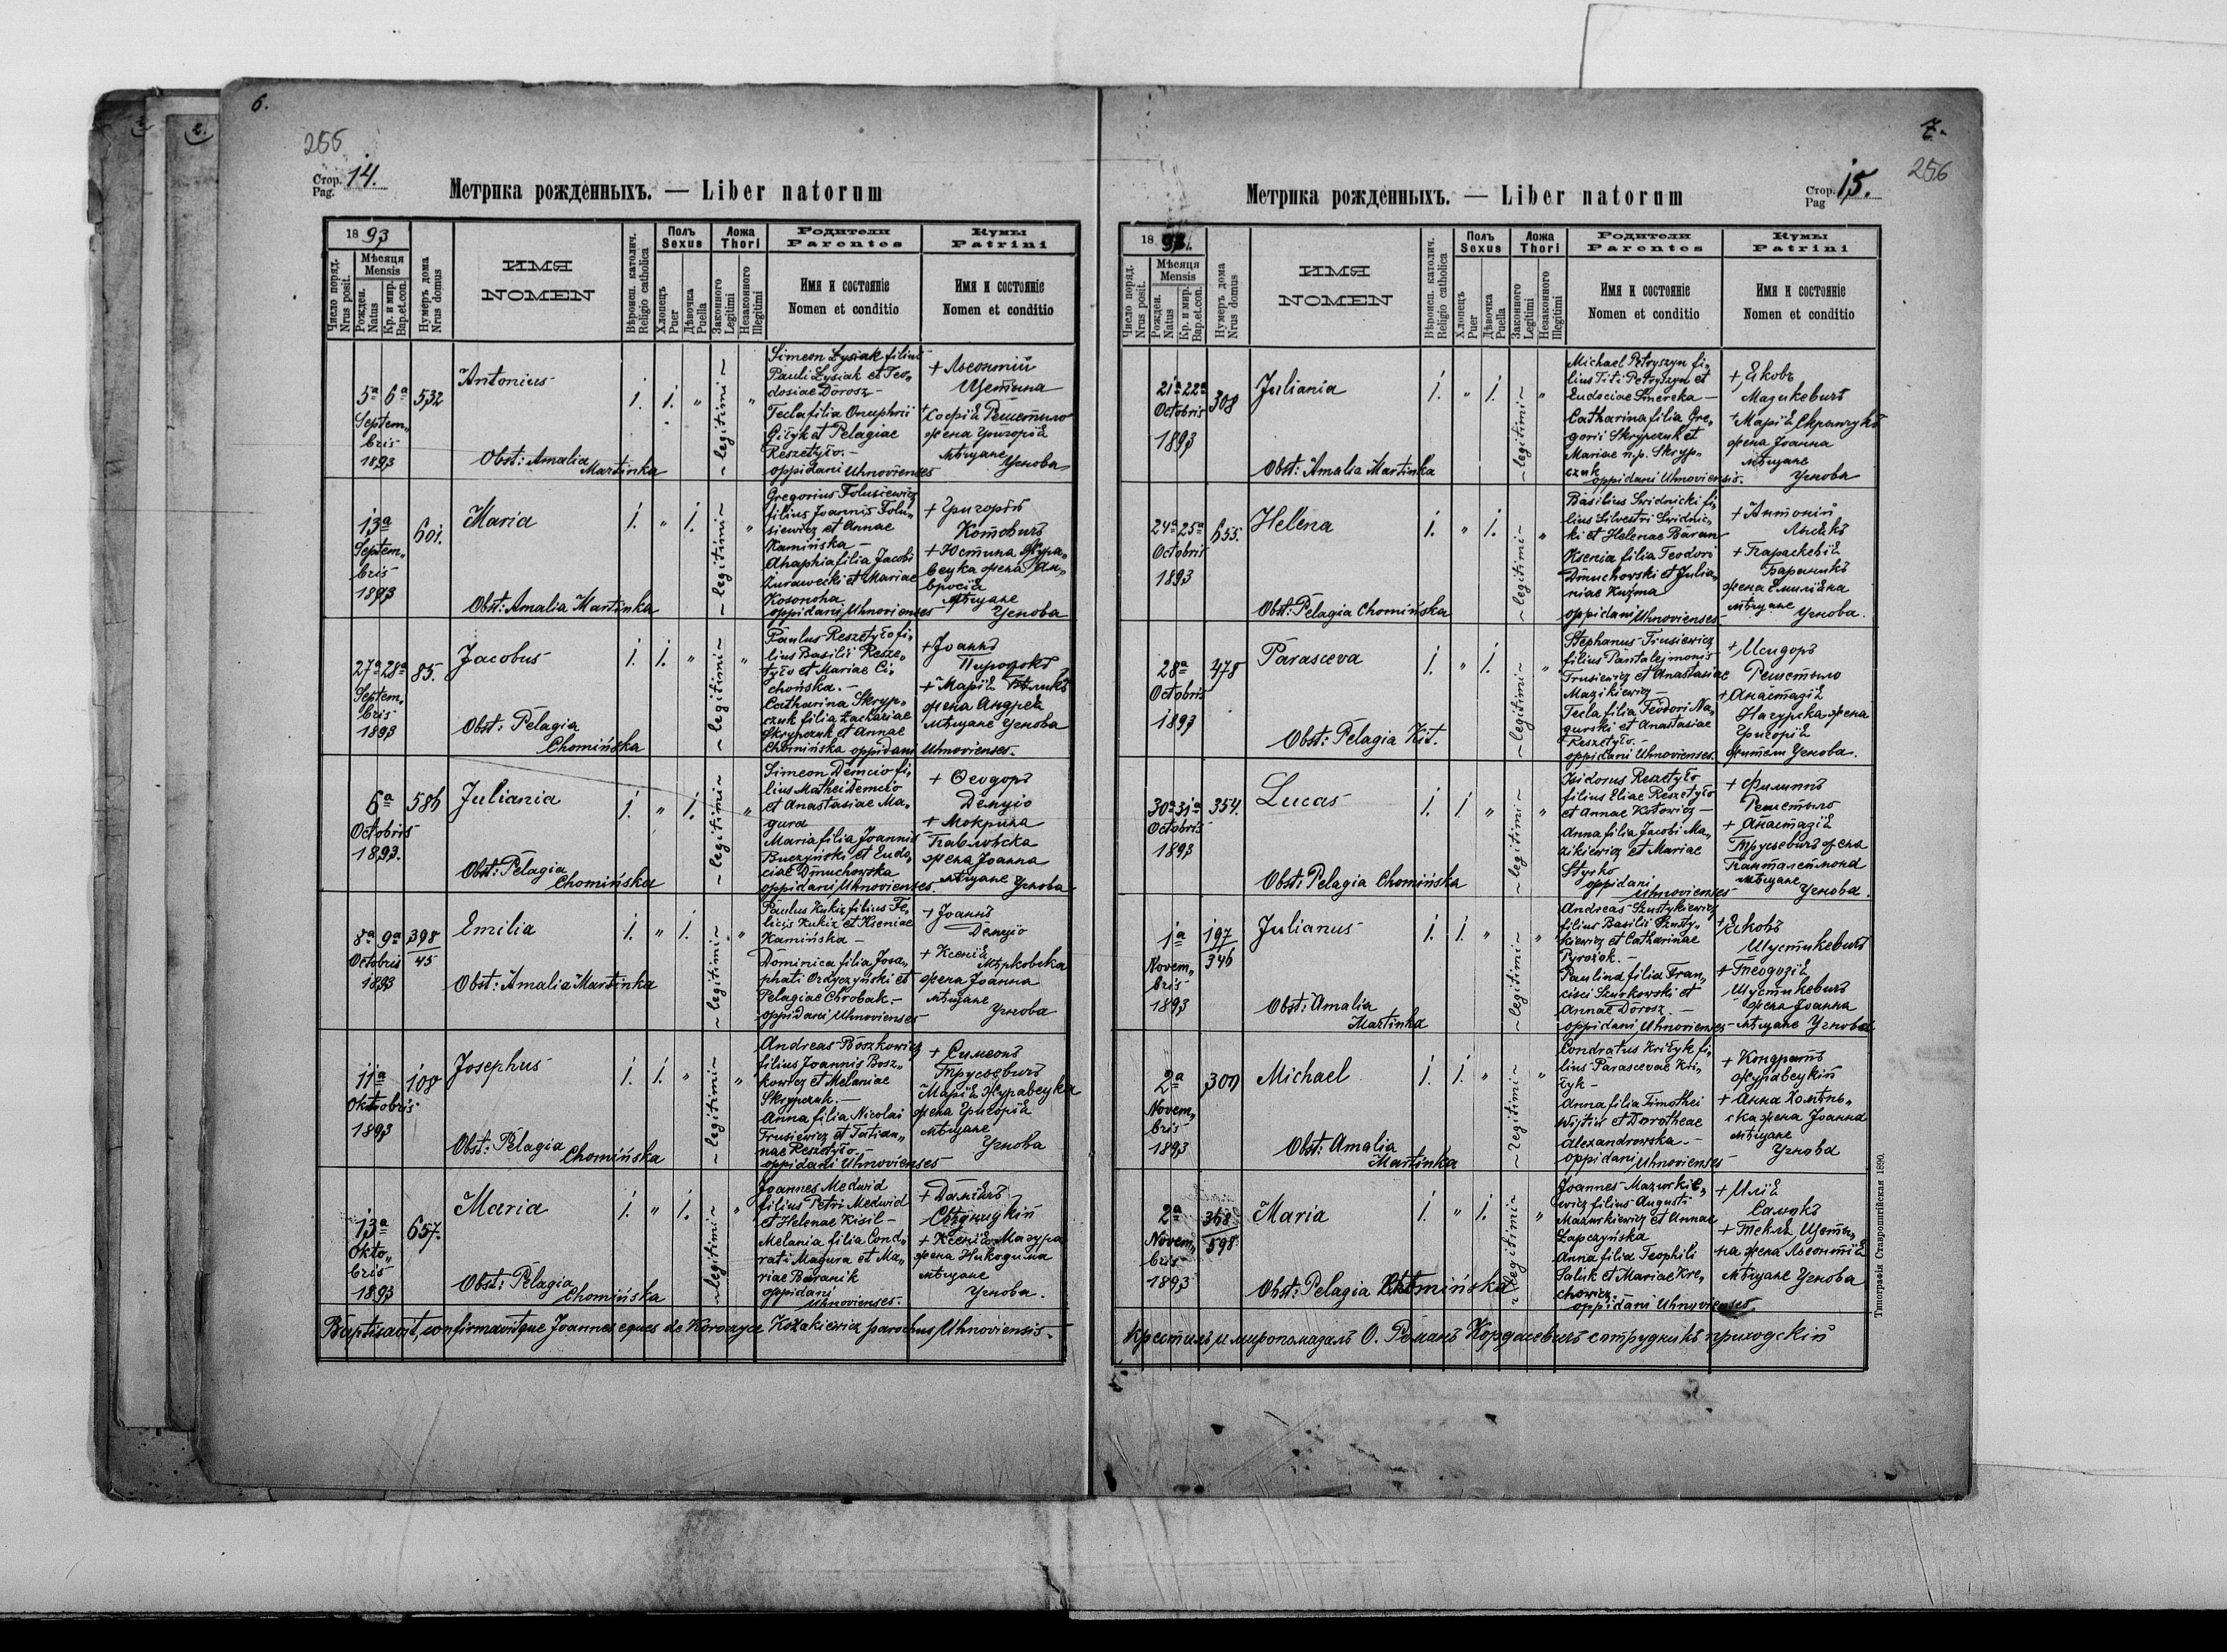 6.
255
Стор. Pag. 14.
Метрика рожденныхъ. — Liber natorum
1893
Число поряд. Nrus posit.
Мѣсяця Mensis
Рожден. Natus
Кр. и мир. Bap. et con.
Нумеръ дома Nrus domus
ИМЯ
NOMEN
Вѣроисп. католич. Religio catholica
Полъ Sexus
Хлопецъ Puer
Дѣвочка Puella
Ложа Thori
Законного Legitimi
Незаконного Illegitimi
Родители
Parentes
Имя и состояніе
Nomen et conditio
Кумы
Patrini
Имя и состояніе
Nomen et conditio
5a 6a
Septem„
bris
1893
532
Antonius
Obst: Amalia
Martinka
1. 1. „
~ legitimi ~
„
Simeon Łysiak filius
Pauli Łysiak et Teo„
dosiae Dorosz —
Tecla filia Onuphrii
Giłyk et Pelagiae
Reszetyło. —
oppidani Uhnovienses
+ Льеонтій
Щетина
+ Софія Решетыло
жена Григорія
мѣщане
Угнова
13a
Septem„
bris
1893
601.
Maria
Obst: Amalia Martinka
1. „ 1.
~ legitimi ~
„
Gregorius Folusiewicz
filius Joannis Folu„
siewicz et Annae
Kamińska —
Anaphia filia Jacobi
Żurawecki et Mariae
Kosonoha.
oppidani Uhnovienses
+ Григорій
Котовичъ
+ Юстина Жура„
вецка жена Ам„
вросія
мѣщане
Угнова
27a 28a
Septem„
bris
1893
85.
Jacobus
Obst: Pelagia
Chomińska
1. 1. „
~ legitimi ~
„
Paulus Reszetyło fi„
lius Basilii Resze„
tyło et Mariae Ci„
chońska. —
Catharina Skryp„
czuk filia Zachariae
Skrypczuk et Annae
Chomińska oppidani Uhnovienses.
+ Іоаннъ
Пирожокъ
+ Марія
жена Андрея
мѣщане Угнова
6a
Octobris
1893.
586
Juliania
Obst: Pelagia
Chomińska
1. „ 1.
~ legitimi ~
„
Simeon Demcio fi„
lius Mathei Demcio
et Anastasiae Ma„
gura
Maria filia Joannis
Buczyński et Eudo„
ciae Dmuchowska
oppidani Uhnovienses.
+ Ѳеодоръ
Демціо
+ Мокрина
Павлѣвска
жена Іоанна
мѣщане
Угнова
8a 9a
Octobris
1893
398
45
Emilia
Obst: Amalia Martinka
1. „ 1.
~ legitimi ~
„
Paulus Kukiz filius Fe„
licis Kukiz et Kseniae
Kamińska —
Dominica filia Josa„
phati Ordyczyński et
Pelagiae Chrobak. —
oppidani Uhnovienses
+ Іоаннъ
Демціо
+ Ксенія
Мѣрковска
жена Іоанна
мѣщане
Угнова
11a
Oktobris
1893
108
Josephus
Obst: Pelagia
Chomińska
1. 1. „
~ legitimi ~
„
Andreas Boszkowicz
filius Joannis Bosz„
kowicz et Melaniae
Skrypczuk. —
Anna filia Nicolai
Trusiewicz et Tatian„
nae Reszetyło. —
oppidani Uhnovienses
+ Симеонъ
Трусьевичъ
Марія Журавецка
жена Григорія
мѣщане
Угнова
13a
Okto„
bris
1893
657.
Maria
Obst: Pelagia
Chomińska
1. „ 1.
~ legitimi ~
„
Joannes Medwid
filius Petri Medwid
et Helenae Kisil —
Melania filia Cond„
rati Magura et Ma„
riae Baranik
oppidani
Uhnovienses.
+ Даніилъ
Свѣдницкій
+ Ксенія Магура
жена Никодима
мѣщане
Угнова.
Baptisavit, confirmavitque Joannes eques de Korczyce Kozakiewicz parochus Uhnoviensis.
7.
256
Стор. Pag 15.
Метрика рожденныхъ. — Liber natorum
1893.
Число поряд. Nrus posit.
Мѣсяця Mensis
Рожден. Natus
Кр. и мир. Bap. et con.
Нумеръ дома Nrus domus
ИМЯ
NOMEN
Вѣроисп. католич. Religio catholica
Полъ Sexus
Хлопецъ Puer
Дѣвочка Puella
Ложа Thori
Законного Legitimi
Незаконного Illegitimi
Родители
Parentes
Имя и состояніе
Nomen et conditio
Кумы
Patrini
Имя и состояніе
Nomen et conditio
21a 22a
Octobris
1893
308
Juliania
Obst: Amalia Martinka
1. „ 1.
~ legitimi ~
„
Michael Petryszyn fi„
lius Titi Petryszyn et
Eudociae Smereka —
Catharina filia Gre„
gorii Skrypczuk et
Mariae n.p. Skryp„
czuk
oppidani Uhnoviensis.
+ Яковъ
Мазикевичъ
+ Марія Скрыпчукъ
жена Іоанна
мѣщане
Угнова
24a 25a
Octobris
1893
655.
Helena
Obst: Pelagia Chomińska
1. „ 1.
~ legitimi ~
„
Basilius Swidnicki fi„
lius Silvestri Swidnic„
ki et Helenae Baran
Ksenia filia Teodori
Dmuchovski et Julia„
niae Kuźma
oppidani Uhnovienses
+ Антоній
+ Параскевія
Бараникъ
жена Емиліяна
мѣщане
Угнова.
28a
Octobris
1893
478
Parasceva
Obst: Pelagia Kit.
1. „ 1.
~ legitimi ~
„
Stephanus Trusiewicz
filius Pantalejmonis
Trusiewicz et Anastasiae
Mazikiewicz —
Tecla filia Teodori Na„
gurski et Anastasiae
Reszetyło. —
oppidani Uhnovienses.
+ Исидоръ
Решетыло
+ Анастазія
Нагурска жена
Григорія
жители Угнова.
30a 31a
Octobris
1893
354.
Lucas
Obst: Pelagia Chomińska
1. 1. „
~ legitimi ~
„
Isidorus Reszetyło
filius Eliae Reszetyło
et Annae Kotowicz —
Anna filia Jacobi Ma„
zikiewicz et Mariae
Styrko
oppidani
Uhnovienses
+ Филиппъ
Решетыло
+ Анастазія
Трусьевичъ жена
Панталеимона
мѣщане
Угнова.
1a
Novem„
bris
1893
197
346
Julianus
Obst: Amalia
Martinka
1. 1. „
~ legitimi ~
„
Andreas Szustykiewicz
filius Basilii Szusty„
kiewicz et Catharinae
Pyrożok. —
Paulina filia Fran„
cisci Szurkowski et
Annae Dorosz. —
oppidani Uhnovienses
+ Яковъ
Шустикевичъ
+ Теодозія
Шустикевичъ
жена Іоанна
мѣщане Угнова
2a
Novem„
bris
1893
300
Michael
Obst: Amalia
Martinka
1. 1. „
~ legitimi ~
„
Condratus Kriłyk fi„
lius Parascevae Kri„
łyk —
Anna filia Timothei
Wijtiw et Dorotheae
Alexandrowska. —
oppidani Uhnovienses
+ Кондратъ
Журавецкій
+ Анна Хомѣнь„
ска жена Іоанна
мѣщане
Угнова
2a
Novem„
bris
1893
368
598
Maria
Obst: Pelagia Chomińska
1. „ 1.
~ legitimi ~
„
Joannes Mazurkie„
wicz filius Augusti
Mazurkiewicz et Annae
Łapczyńska
Anna filia Teophili
Salik et Mariae Kre„
chowicz.
oppidani Uhnovienses.
+ Илія
+ Текля Щети„
на жена Льеонтія
мѣщане Угнова
Крестилъ и миропомазалъ О. Романъ Кордасевичъ сотрудникъ приходскій
Типографія Ставропигійская 1890.